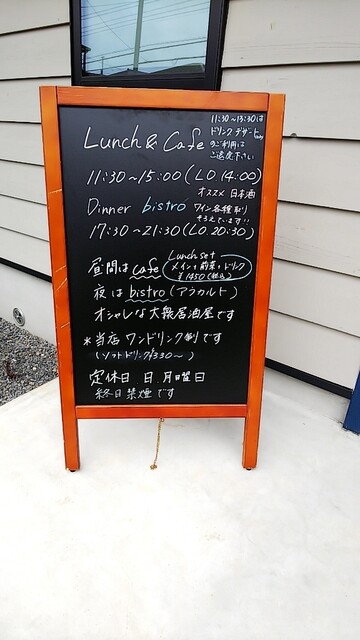 11:30~13:30は
ドリンク デザートonly
のご利用は
ご遠慮下さい
Lunch & Cafe
11:30~15:00(LO 14:00)
オススメ 日本酒
Dinner bistro
ワイン各種取り
そろえています!!
17:30~21:30(LO 20:30)
昼間は cafe
Lunch set
メイン+前菜+ドリンク
¥1450(税込)
夜は bistro(アラカルト)
オシャレな大衆居酒屋です
*当店 ワンドリンク制です
(ソフトドリンク¥330~)
定休日 日.月曜日
終日禁煙です